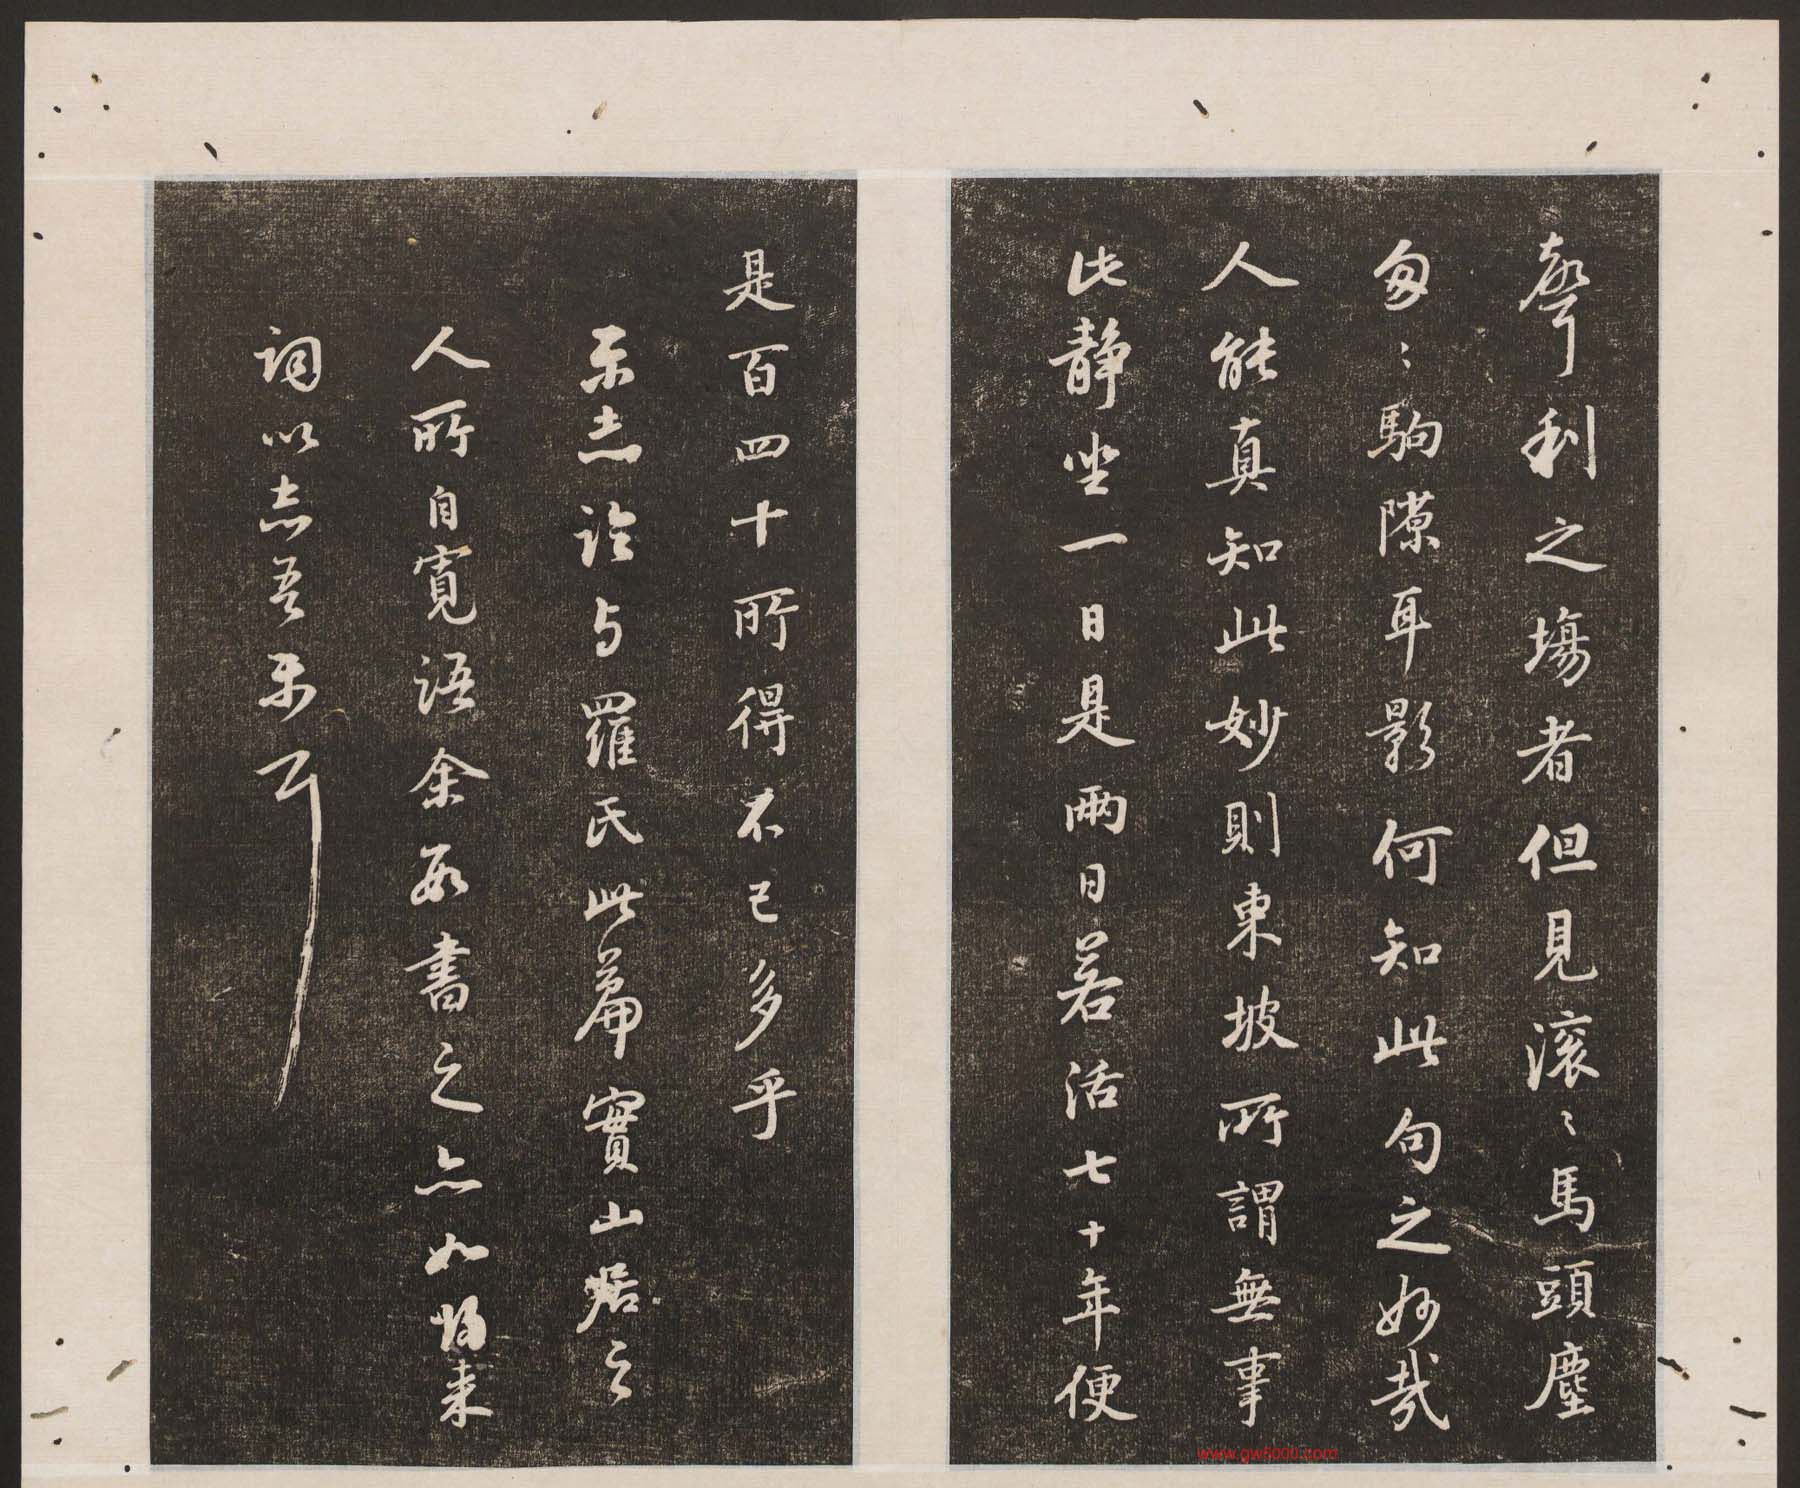 聲利之場者但見滚〻馬頭塵
匆〻駒隙耳影何知此句之妙哉
人能真知此妙則東坡所謂無事
此静坐一日是兩日若活七十年便
是百四十所得不已多乎
樂志論与羅氏此篇實山居之
人所自寬語余每書之亦如歸来
詞以志吾樂耳
www.gw5000.com